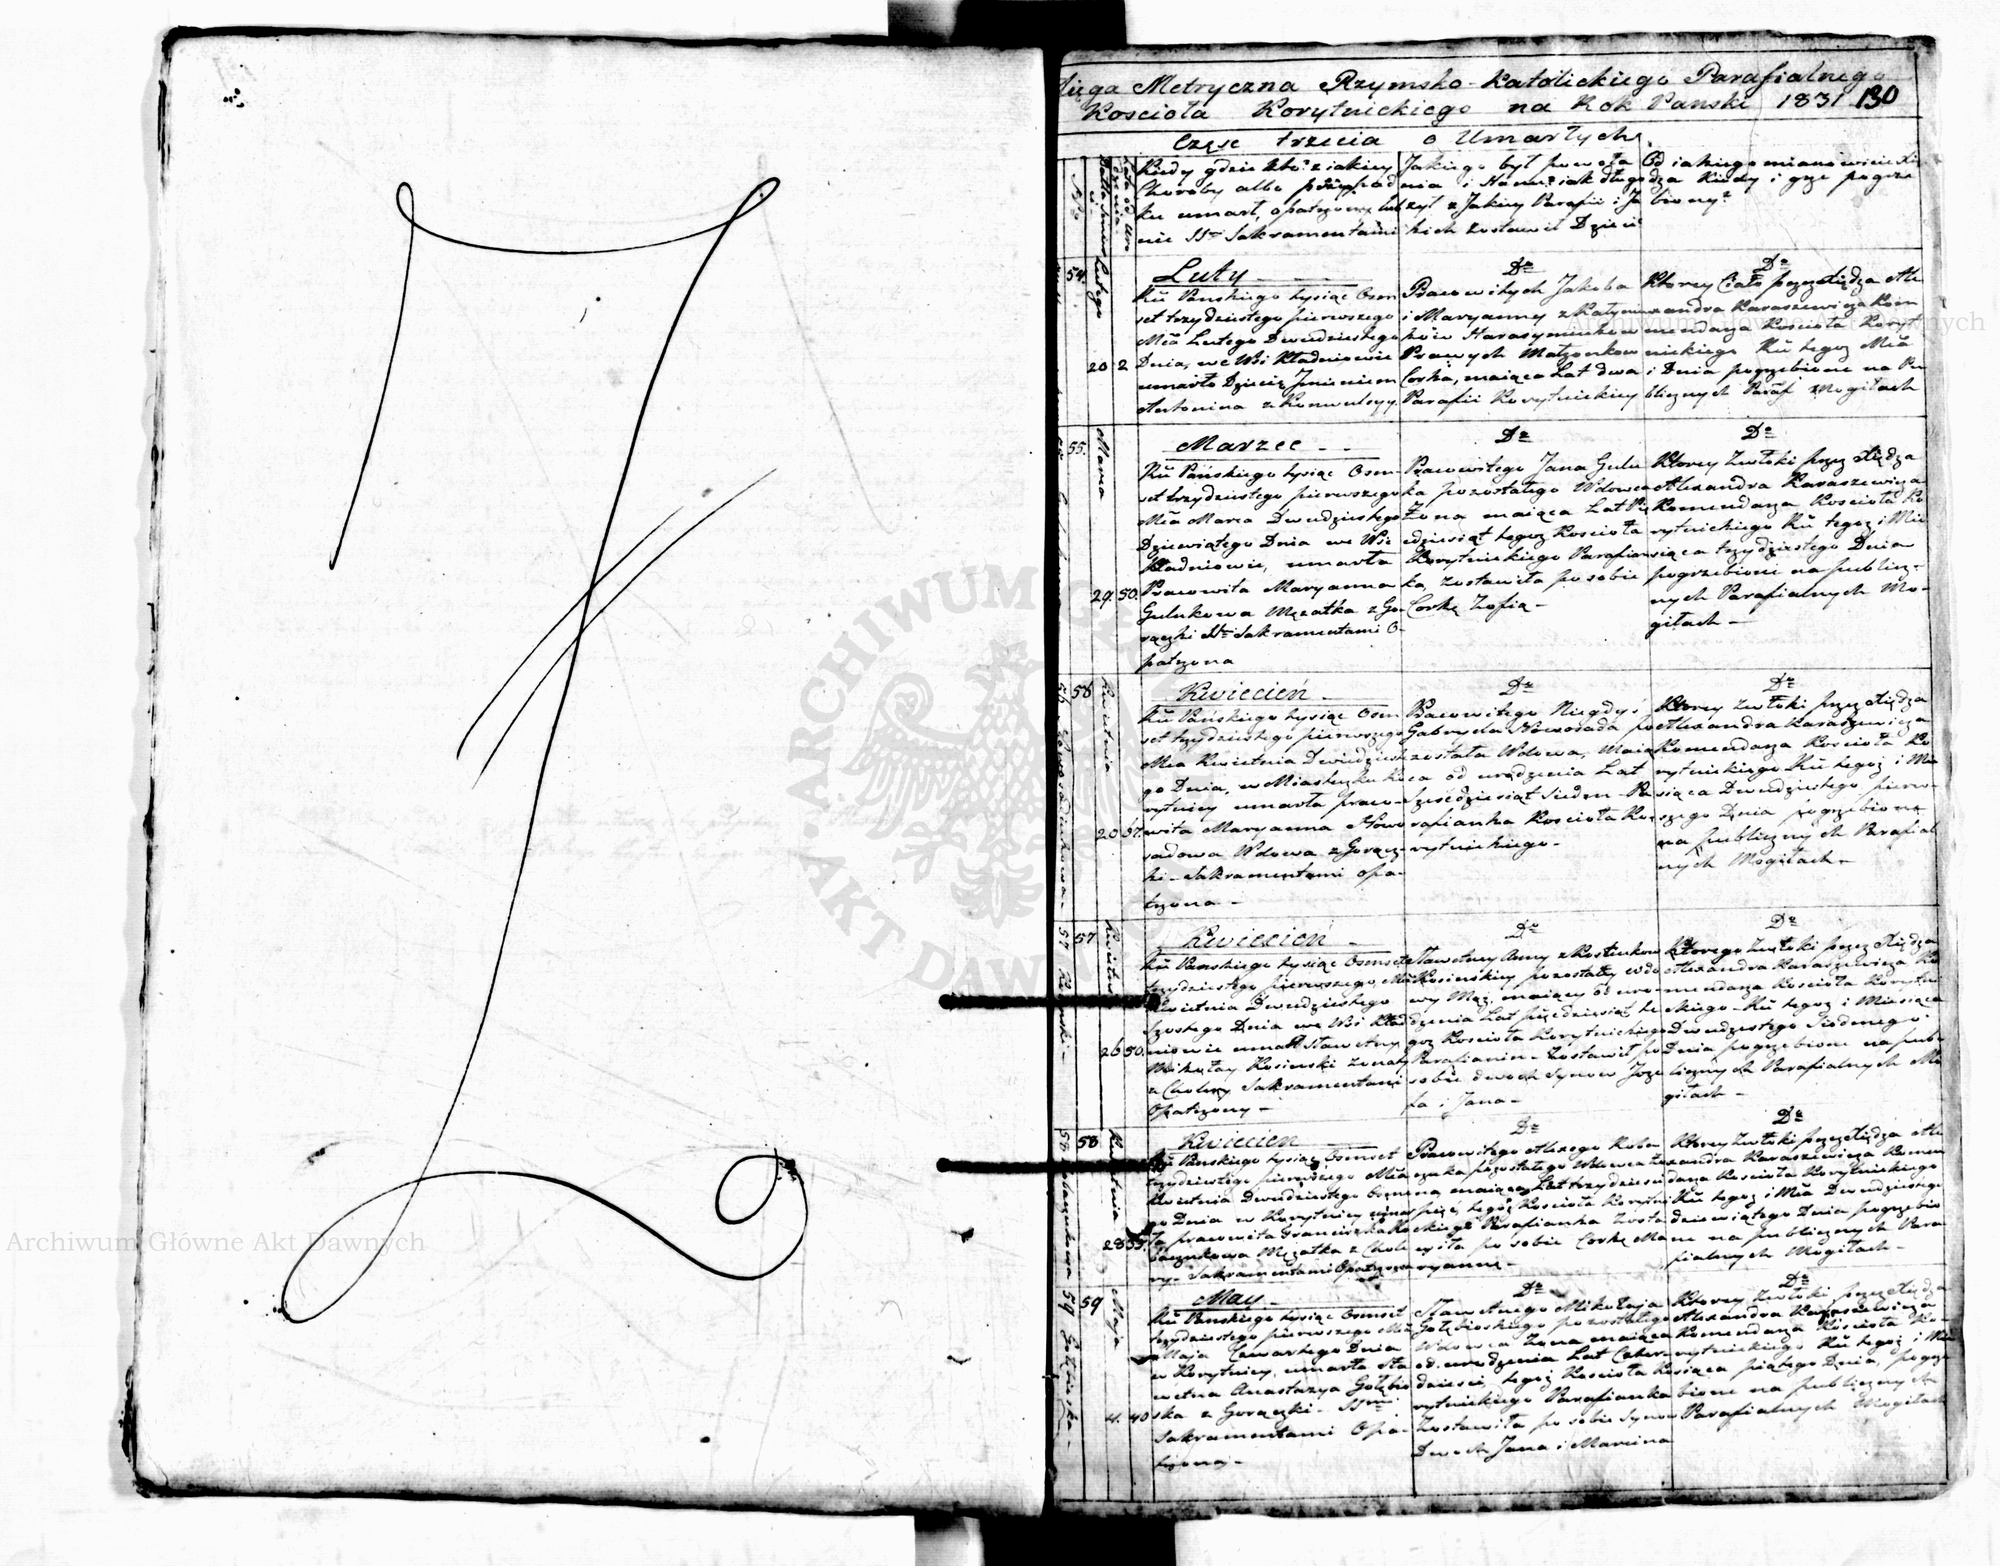 Xięga Metryczna Rzymsko-Katolickiego Parafialnego
Koscioła Korytnickiego na Rok Panski 1831 130
Częsc trzecia o Umarłych
Kiedy gdzie kto? z iakiey
Choroby albo przypad
ku umarł, opatrzony lub
nie SSmi Sakramentami
Jakiego był powoła
nia i Stanu? iak długo
żył z Jakiey Parafii i Ja
kich zostawił Dzieci
Od iakiego mianowicie Xię
dza Kiedy i gdzie pogrze
biony?
54.
Lutego
20 2
Luty
Ru Panskiego tysiąc Osm
set trzydziestego pierwszego
Mca Lutego Dwudziestego
Dnia, we Wsi Kładniowie
umarło Dziecię Jmieniem
Antonina z Konwulsyy
Do
Pracowitych Jakuba
i Maryanny
Prawych Małzonkow
Corka, maiąca Lat dwa
Parafii Korytnickiey
Do
Ktorey Ciało przez Xiędza Ale
xandra Karaszewicza Kom
mendarza Kosciola Koryt
nickiego Ru tegoz Mca
i Dnia pogrzebione na Pu
blicznych Paraf Mogiłach
55.
Marca
29. 50.
Marzec
Ru Pańskiego tysiąc Osm
set trzydziestego pierwszego
Mca Marca Dwudziestego
Dziewiątego Dnia we Wsi
Kładniowie, umarła
Pracowita Maryanna
Gulukowa Męzatka z Go-
rączki SSmi Sakramentami O-
patrzona
Do
Pracowitego Jana Gulu
ka pozostałego Wdowca
Zona maiąca Lat Pię
dziesiąt tegoz Kosciola
Korytnickiego Parafian
ka, zostawiła po sobie
Corkę Zofią -
Do
Ktorey Zwłoki przez Xiędza
Alexandra Karaszewicza
Komendarza Kosciola Ko
rytnickiego Ru tegoz i Mie
siąca trzydziestego Dnia
pogrzebione na publicz-
nych Parafialnych Mo-
giłach -
56
Kwietnia
20 67.
Kwiecień
Ru Pańskiego tysiąc Osm
set trzydziestego pierwszego
Mca Kwietnia Dwudzieste
go Dnia, w Miasteczku Ko
rytnicy umarła praco-
wita Maryanna Nowo
sadowa Wdowa z Gorącz-
ki - Sakramentami opa-
trzona -
Do
Pracowitego Niegdyś
Gabryela Nowosada po
zostala Wdowa, Maią
ca od urodzenia Lat
Szescdziesiąt Siedm - Pa
rafianka Kosciola Ko
rytnickiego -
Do
Ktorey Zwłoki przez Xiędza
Alexandra Karaszewicza
Komendarza Kosciola Ko
rytnickiego Ru tegoz i Mie
siąca Dwudziestego pierw-
szego Dnia pogrzebione
na publicznych Parafial
nych Mogiłach -
57
Kwietnia
26 50.
Kwiecień
Ru Panskiego tysiąc Osmset
trzydziestego pierwszego, Mca
Kwietnia Dwudziestego
Szostego Dnia we Wsi Kład
niowie umarł Sławetny
Mikołay Kosinski zonaty
z Cholery Sakramentami
Opatrzony -
Do
Sławetney Anny z
Kosinskiey pozostałey wdo
wy Mąz, maiący od uro-
dzenia Lat pięcdziesiąt te
goz Kosciola Korytnickiego
Parafianin - Zostawił po
sobie dwoch Synow Joze
fa i Jana -
Do
Ktorego Zwłoki przez Xiędza
Alexandra Karaszewicza Ko
mendarza Kosciola Korytni
ckiego Ru tegoz i Miesiąca
Dwudziestego Siodmego
Dnia pogrzebione na pub
licznych Parafialnych Mo
giłach -
58
Kwietnia
28 35.
Kwiecien
Ru Panskiego tysiąc Osmset
trzydziestego pierwszego Mca
Kwietnia Dwudziestego osme
go Dnia w Korytnicy umar
ła pracowita Franciszka Ko
baczukowa Męzatka z Chole
ry - Sakramentami Opatrzona
Do
Pracowitego Alexego Koba
czuka pozostałego Wdowca Zo
na, maiąca Lat trzydziesci
pięć, tegoz Kosciola Korytni
ckiego Parafianka Zosta
wiła po sobie Corkę Ma
ryannę -
Do
Ktorey Zwłoki przez Xiędza Ale
xandra Karaszewicza Komen
darza Kosciola Korytnickiego
Ru tegoz i Mca Dwudziestego
dziewiątego Dnia pogrzebio
ne na publicznych Para
fialnych Mogiłach -
59
Maja
4. 40
May
Ru Panskiego tysiąc Osmset
trzydziestego pierwszego Mca
Maja Czwartego Dnia
w Korytnicy, umarła Sła
wetna Anastazya Gołębio
ska z Gorączki - SSmi
Sakramentami Opa-
trzona -
Do
Sławetnego Mikołaja
Gołębioskiego pozostałego
Wdowca Zona maiąca
od urodzenia Lat Czter-
dziesci, tegoz Kosciola Ko
rytnickiego Parafianka
Zostawiła po sobie Synow
Dwoch Jana i Marcina
Do
Ktorey Zwłoki przez Xiędza
Alexandra Karaszewicza
Komendarza Kosciola Ko
rytnickiego Ru tegoz i Mie
siąca piątego Dnia, pogrze
bione na publicznych
Parafialnych Mogiłach
ARCHIWUM GŁÓWNE AKT DAWNYCH
Archiwum Główne Akt Dawnych
Archiwum Główne Akt Dawnych